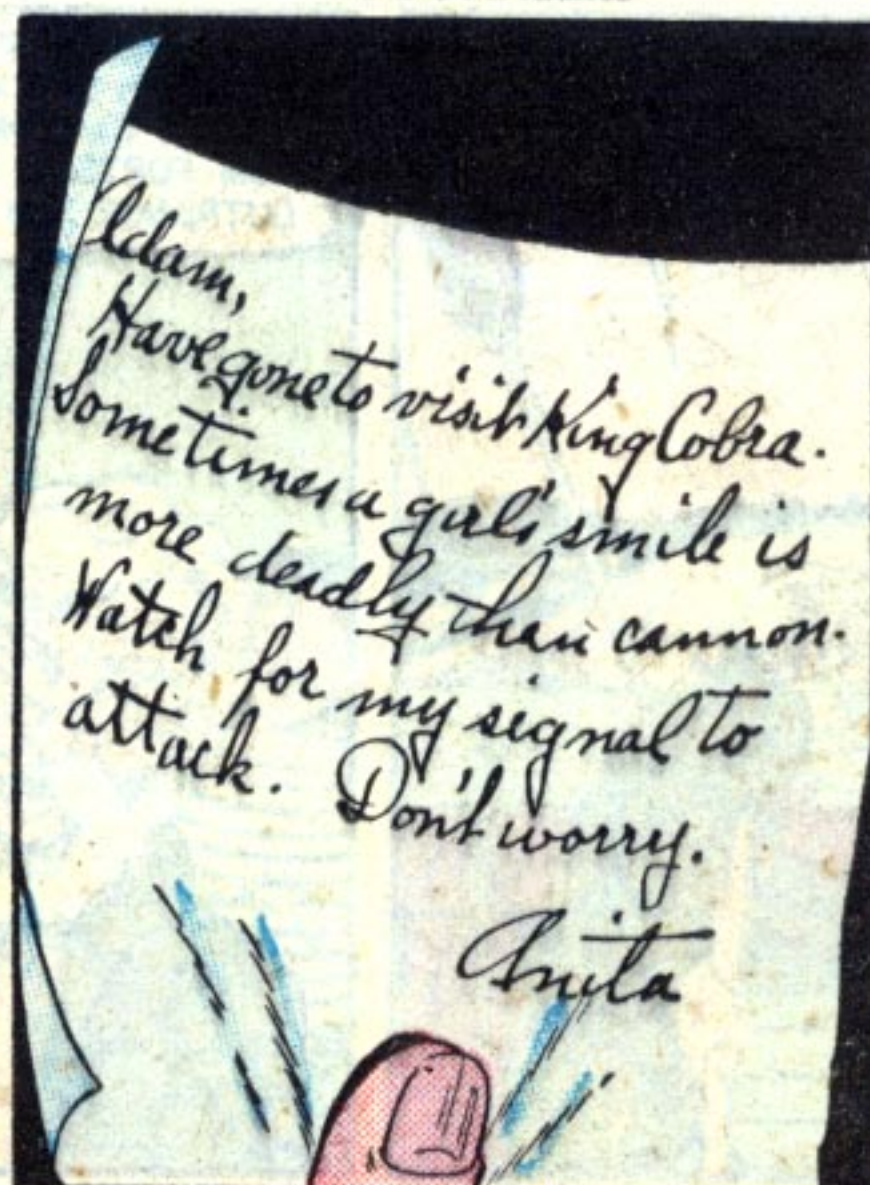 Adam,
Have gone to visit King Cobra.
Sometimes a girl's smile is
more deadly than cannon.
Watch for my signal to
attack. Don't worry.
Anita